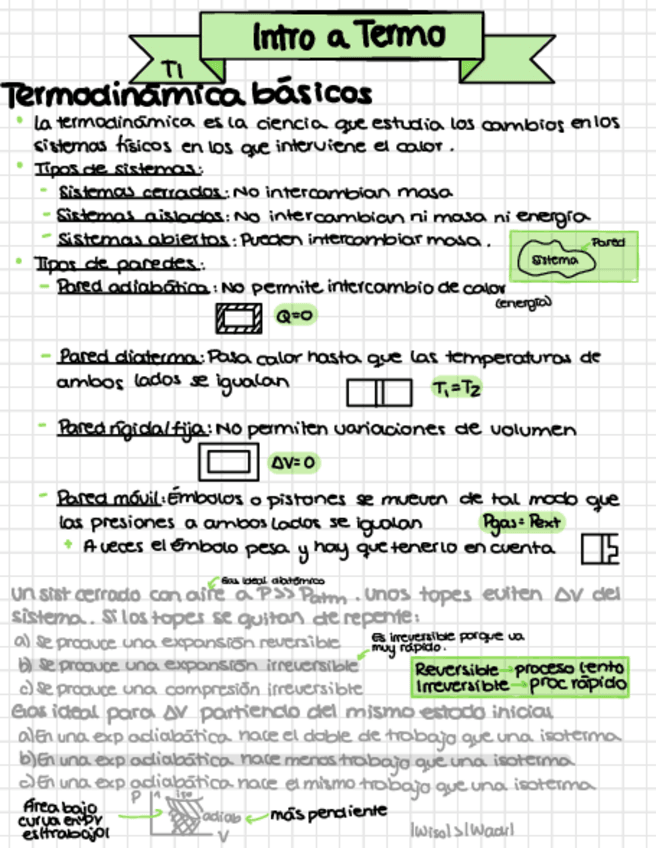 Intro a Termo
T1
Termodinámica básicos
• La termodinámica es la ciencia que estudia los cambios en los
sistemas físicos en los que interviene el calor.
• Tipos de sistemas:
- Sistemas cerrados: No intercambian masa
- Sistemas aislados: No intercambian ni masa ni energía
- Sistemas abiertos: Pueden intercambiar masa.
Pared
Sistema
• Tipos de paredes:
- Pared adiabática: No permite intercambio de calor
(energía)
Q=0
- Pared diaterma: Pasa calor hasta que las temperaturas de
ambos lados se igualan
T₁=T₂
- Pared rígida/fija: No permiten variaciones de volumen
ΔV=0
- Pared móvil: Émbolos o pistones se mueven de tal modo que
las presiones a ambos lados se igualan
Pgas = Pext
+ A veces el émbolo pesa y hay que tenerlo en cuenta
Gas ideal diatómico
Un sist cerrado con aire a P>>Patm. Unos topes eviten ΔV del
sistema. Si los topes se quitan de repente:
a) Se produce una expansión reversible
Es irreversible porque va
muy rápido.
b) Se produce una expansión irreversible
c) Se produce una compresión irreversible
Reversible → proceso lento
Irreversible → proc rápido
Gas ideal para ΔV partiendo del mismo estado inicial
a) En una exp adiabática hace el doble de trabajo que una isoterma
b) En una exp adiabática hace menos trabajo que una isoterma
c) En una exp adiabática hace el mismo trabajo que una isoterma
Área bajo
curva en PV
es |trabajo|
P
iso
adiab
V
más pendiente
|Wiso|>|Wadi|